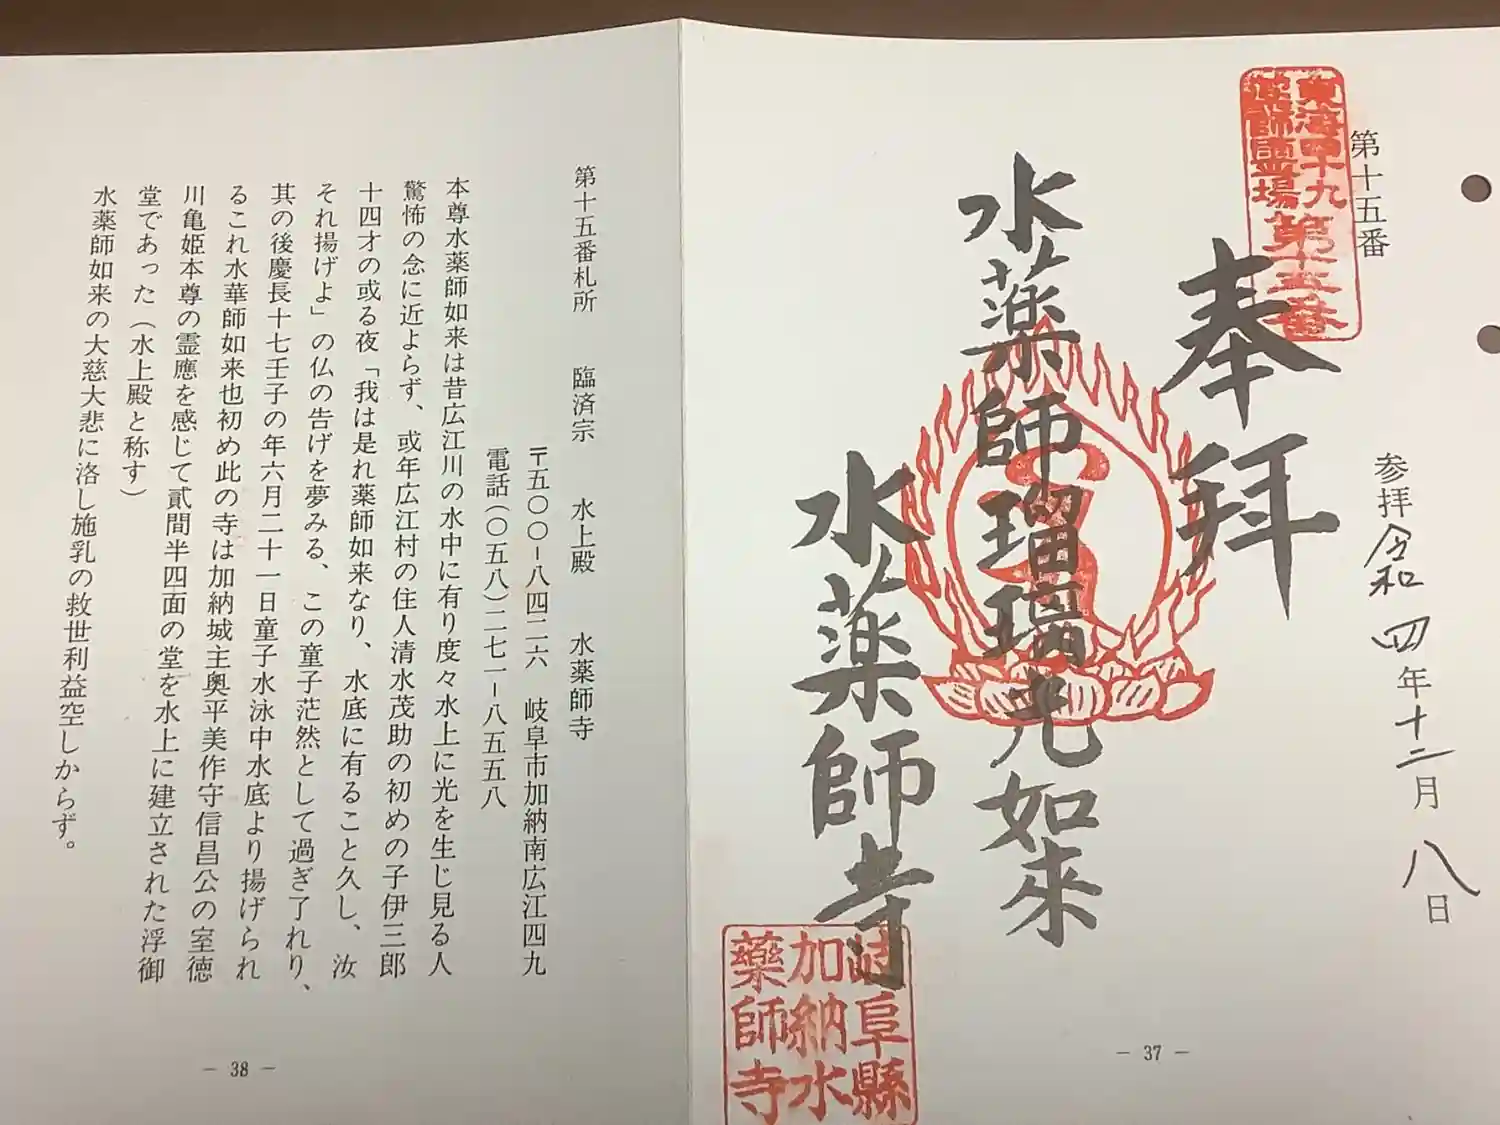 東海四十九
薬師霊場
第十五番
第十五番
参拝 令和四年十二月八日
奉拝
水薬師瑠璃光如来
水薬師寺
岐阜縣
加納水
藥師寺
― 37 ―
第十五番札所 臨済宗 水上殿 水薬師寺
〒五〇〇-八四二六 岐阜市加納南広江四九
電話(〇五八)二七一-八五五八
本尊水薬師如来は昔広江川の水中に有り度々水上に光を生じ見る人
驚怖の念に近よらず、或年広江村の住人清水茂助の初めの子伊三郎
十四才の或る夜「我は是れ薬師如来なり、水底に有ること久し、汝
それ揚げよ」の仏の告げを夢みる、この童子茫然として過ぎ了れり、
其の後慶長十七壬子の年六月二十一日童子水泳中水底より揚げられ
るこれ水華師如来也初め此の寺は加納城主奥平美作守信昌公の室徳
川亀姫本尊の霊應を感じて貳間半四面の堂を水上に建立された浮御
堂であった(水上殿と称す)
水薬師如来の大慈大悲に洛し施乳の救世利益空しからず。
― 38 ―